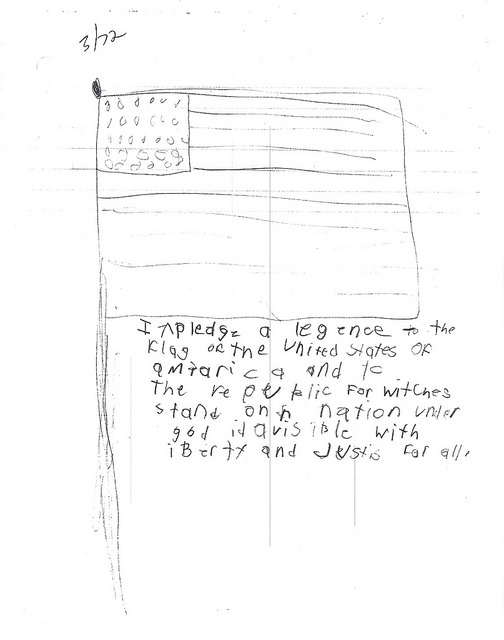 3/72
I Apledge a legence to the
Klag of the United States OF
amTarica and to
The republic For witches
stand onn nation under
god idavisible with
iBerty and Justis For all.